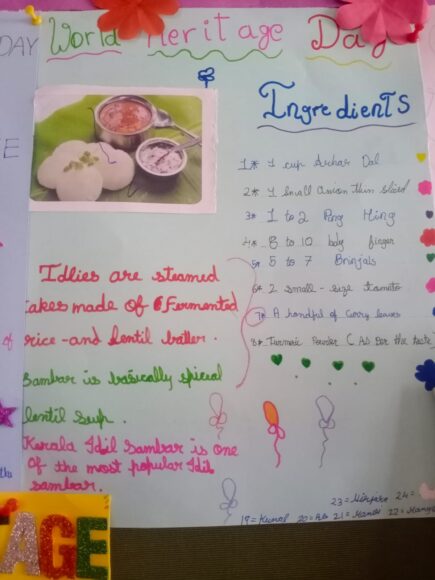 DAY World Heritage Day
Ingredients
1* 1 cup Arhar Dal
2* 1 Small onion thin sliced
3* 1 to 2 Ping Hing
4* 8 to 10 bdy finger
5* 5 to 7 Brinjals
6* 2 small-size tomato
7* A handful of curry leaves
8* Turmeric Powder (As per the taste)
Idlies are steamed
cakes made of Fermented
rice-and lentil batter.
Sambar is basically spicial
lentil Soup.
Kerala Idil Sambar is one
Of the most popular Idil
sambar.
23= 24=
19= Kunal 20= 21= 22=
AGE